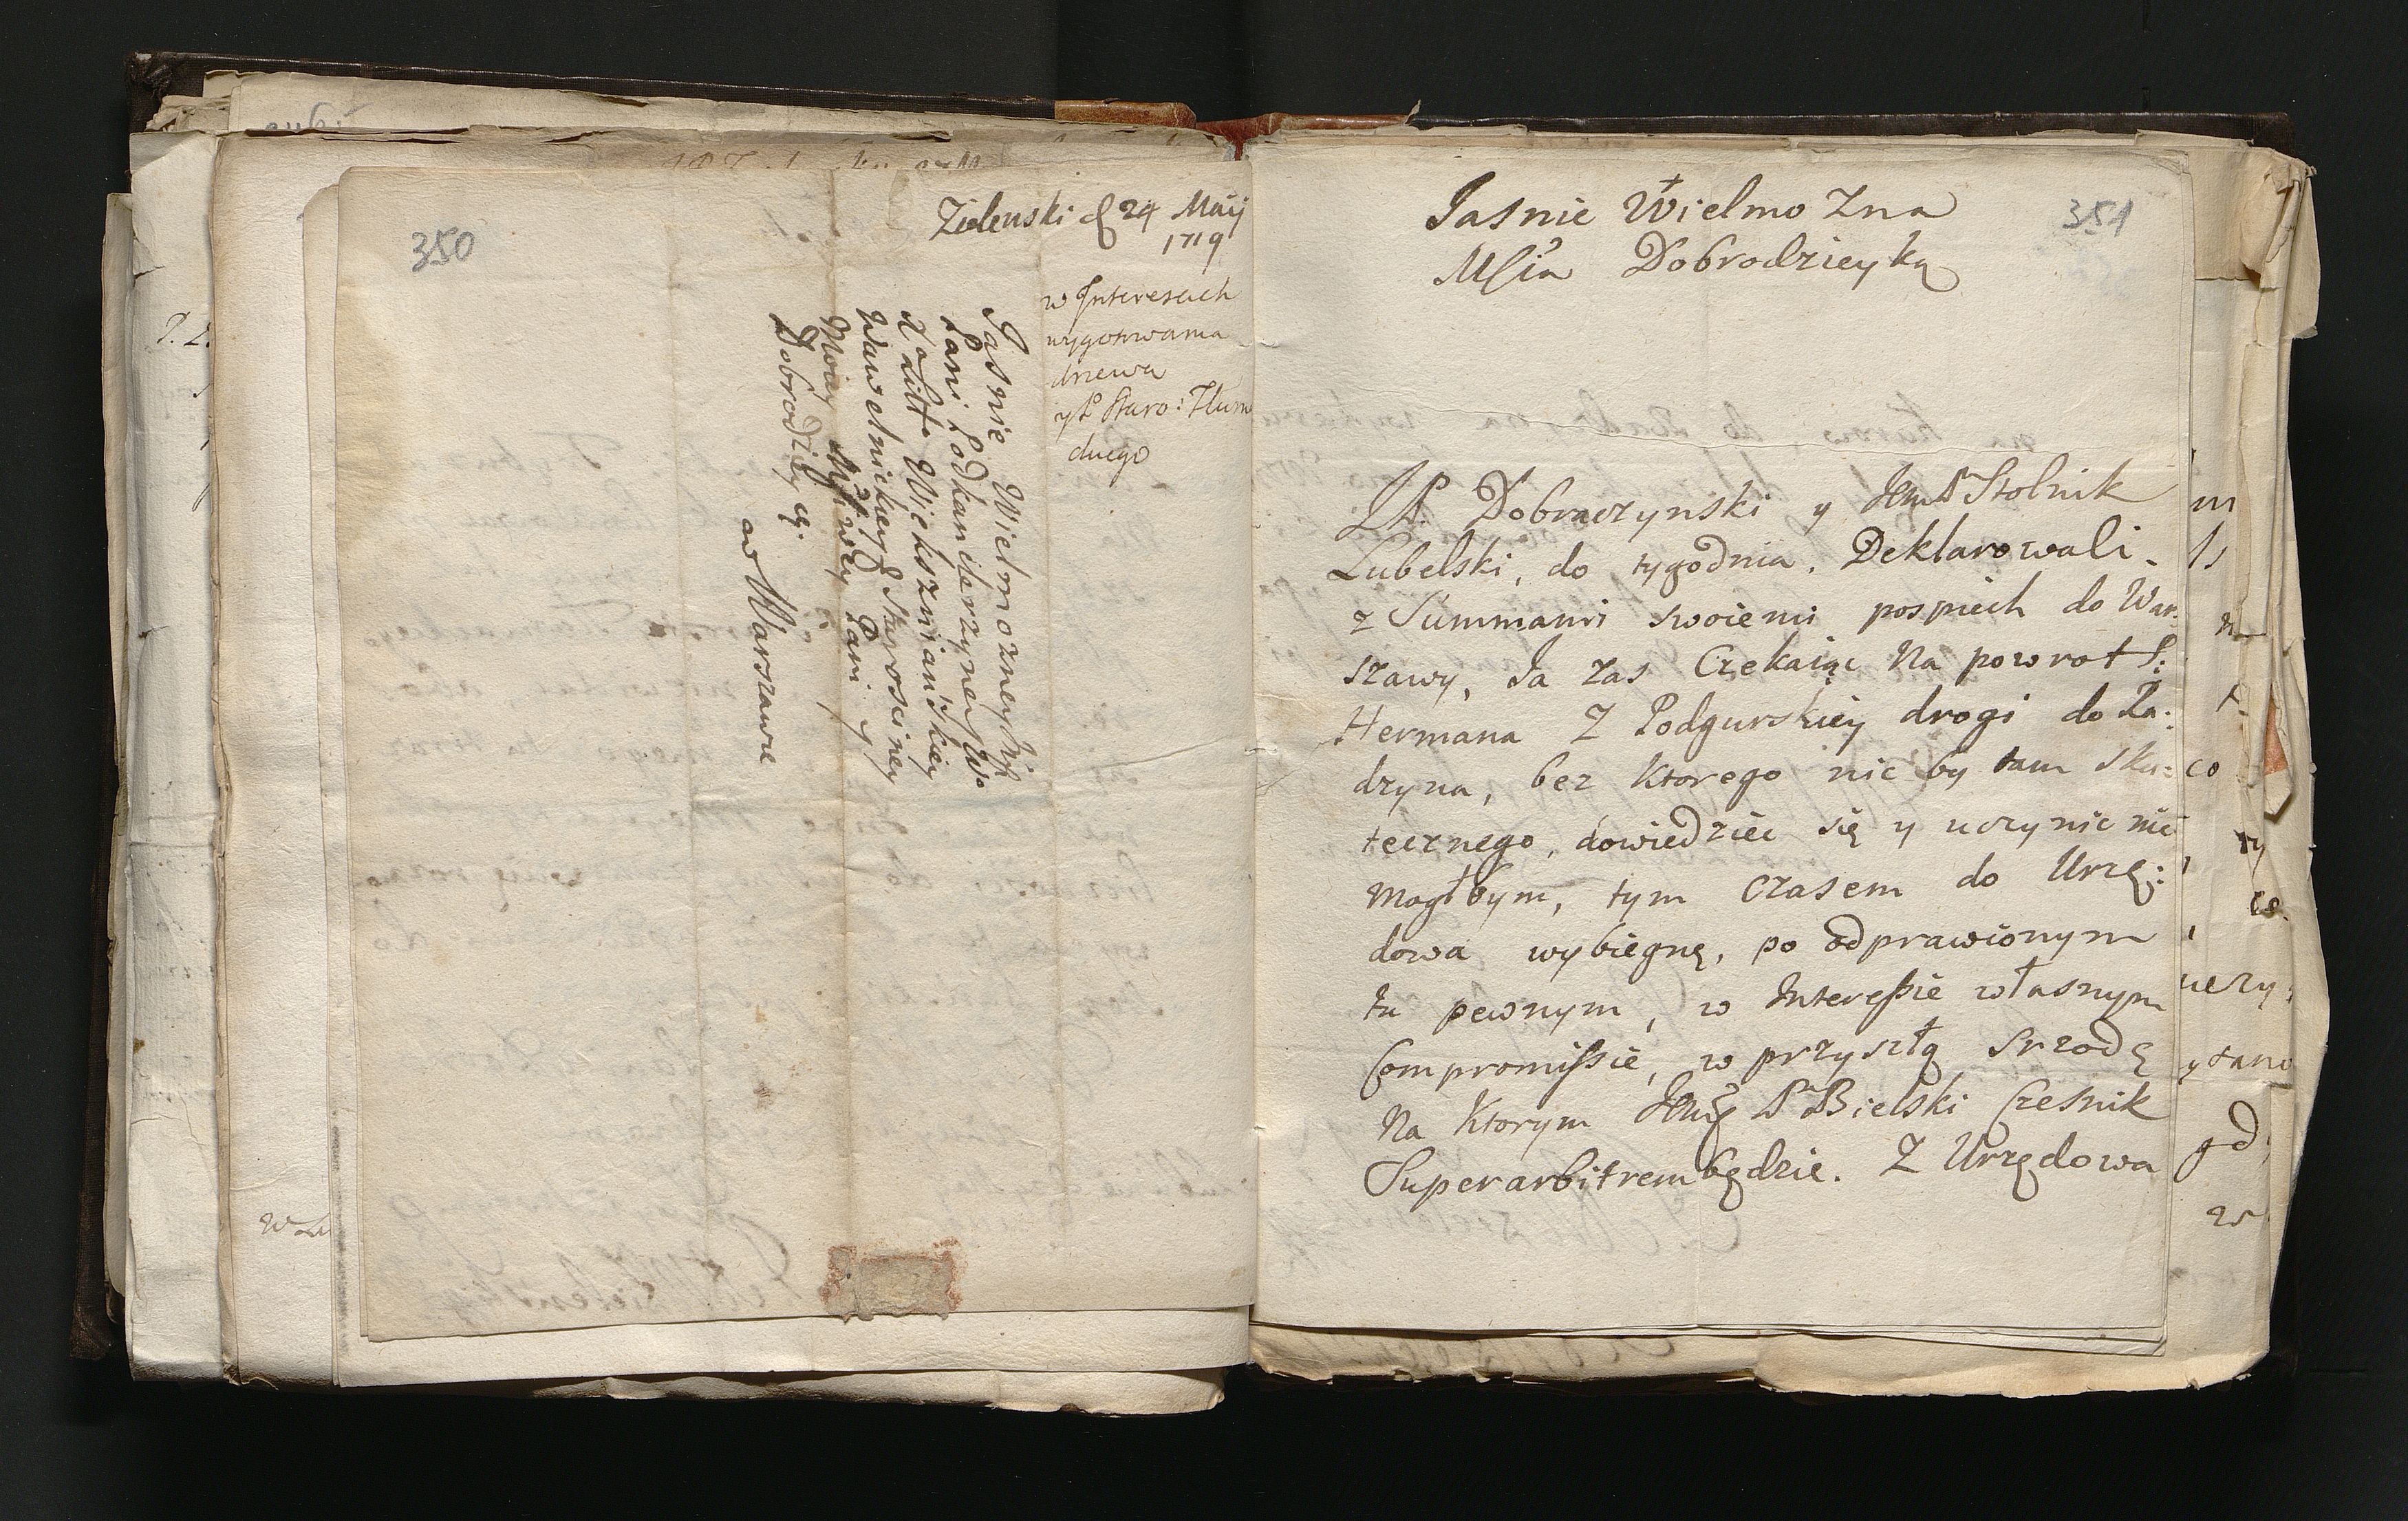 350
Zielenski d 24 Maij
1719
w Interesach
wygotowania
drzewa
y P Staro: Tlum
ckiego
Jasnie Wielmozney JM
Pani Podkanclerzyney W°
X° Litt° Wiekszniańskiey
Wawelnickiey Starosciney
Moiey Mściwey Pani y
Dobrodziyce
w Warszawie
351
Jasnie Wielmozna
Mścia Dobrodzieyką
JP. Dobraczynski y Jem P Stolnik
Lubelski, do tygodnia. Deklarowali
z Summami swoiemi pospiech do War:
szawy, Ja zas Czekaiąc Na powrot P:
Hermana Z Podgurskiey drogi do Ra:
dzyna, bez Ktorego nic by tam sku:
tecznego, dowiedziec się y uczynic nie
mogłbym, tym Czasem do Urzę:
dowa wybiegnę, po odprawionym
tu pewnym, w Interessie własnym
Compromissie, w przyszłą srzodę
Na Ktorym Jemę P Bielski Czesnik
Superarbitrem będzie. Z Urzędowa